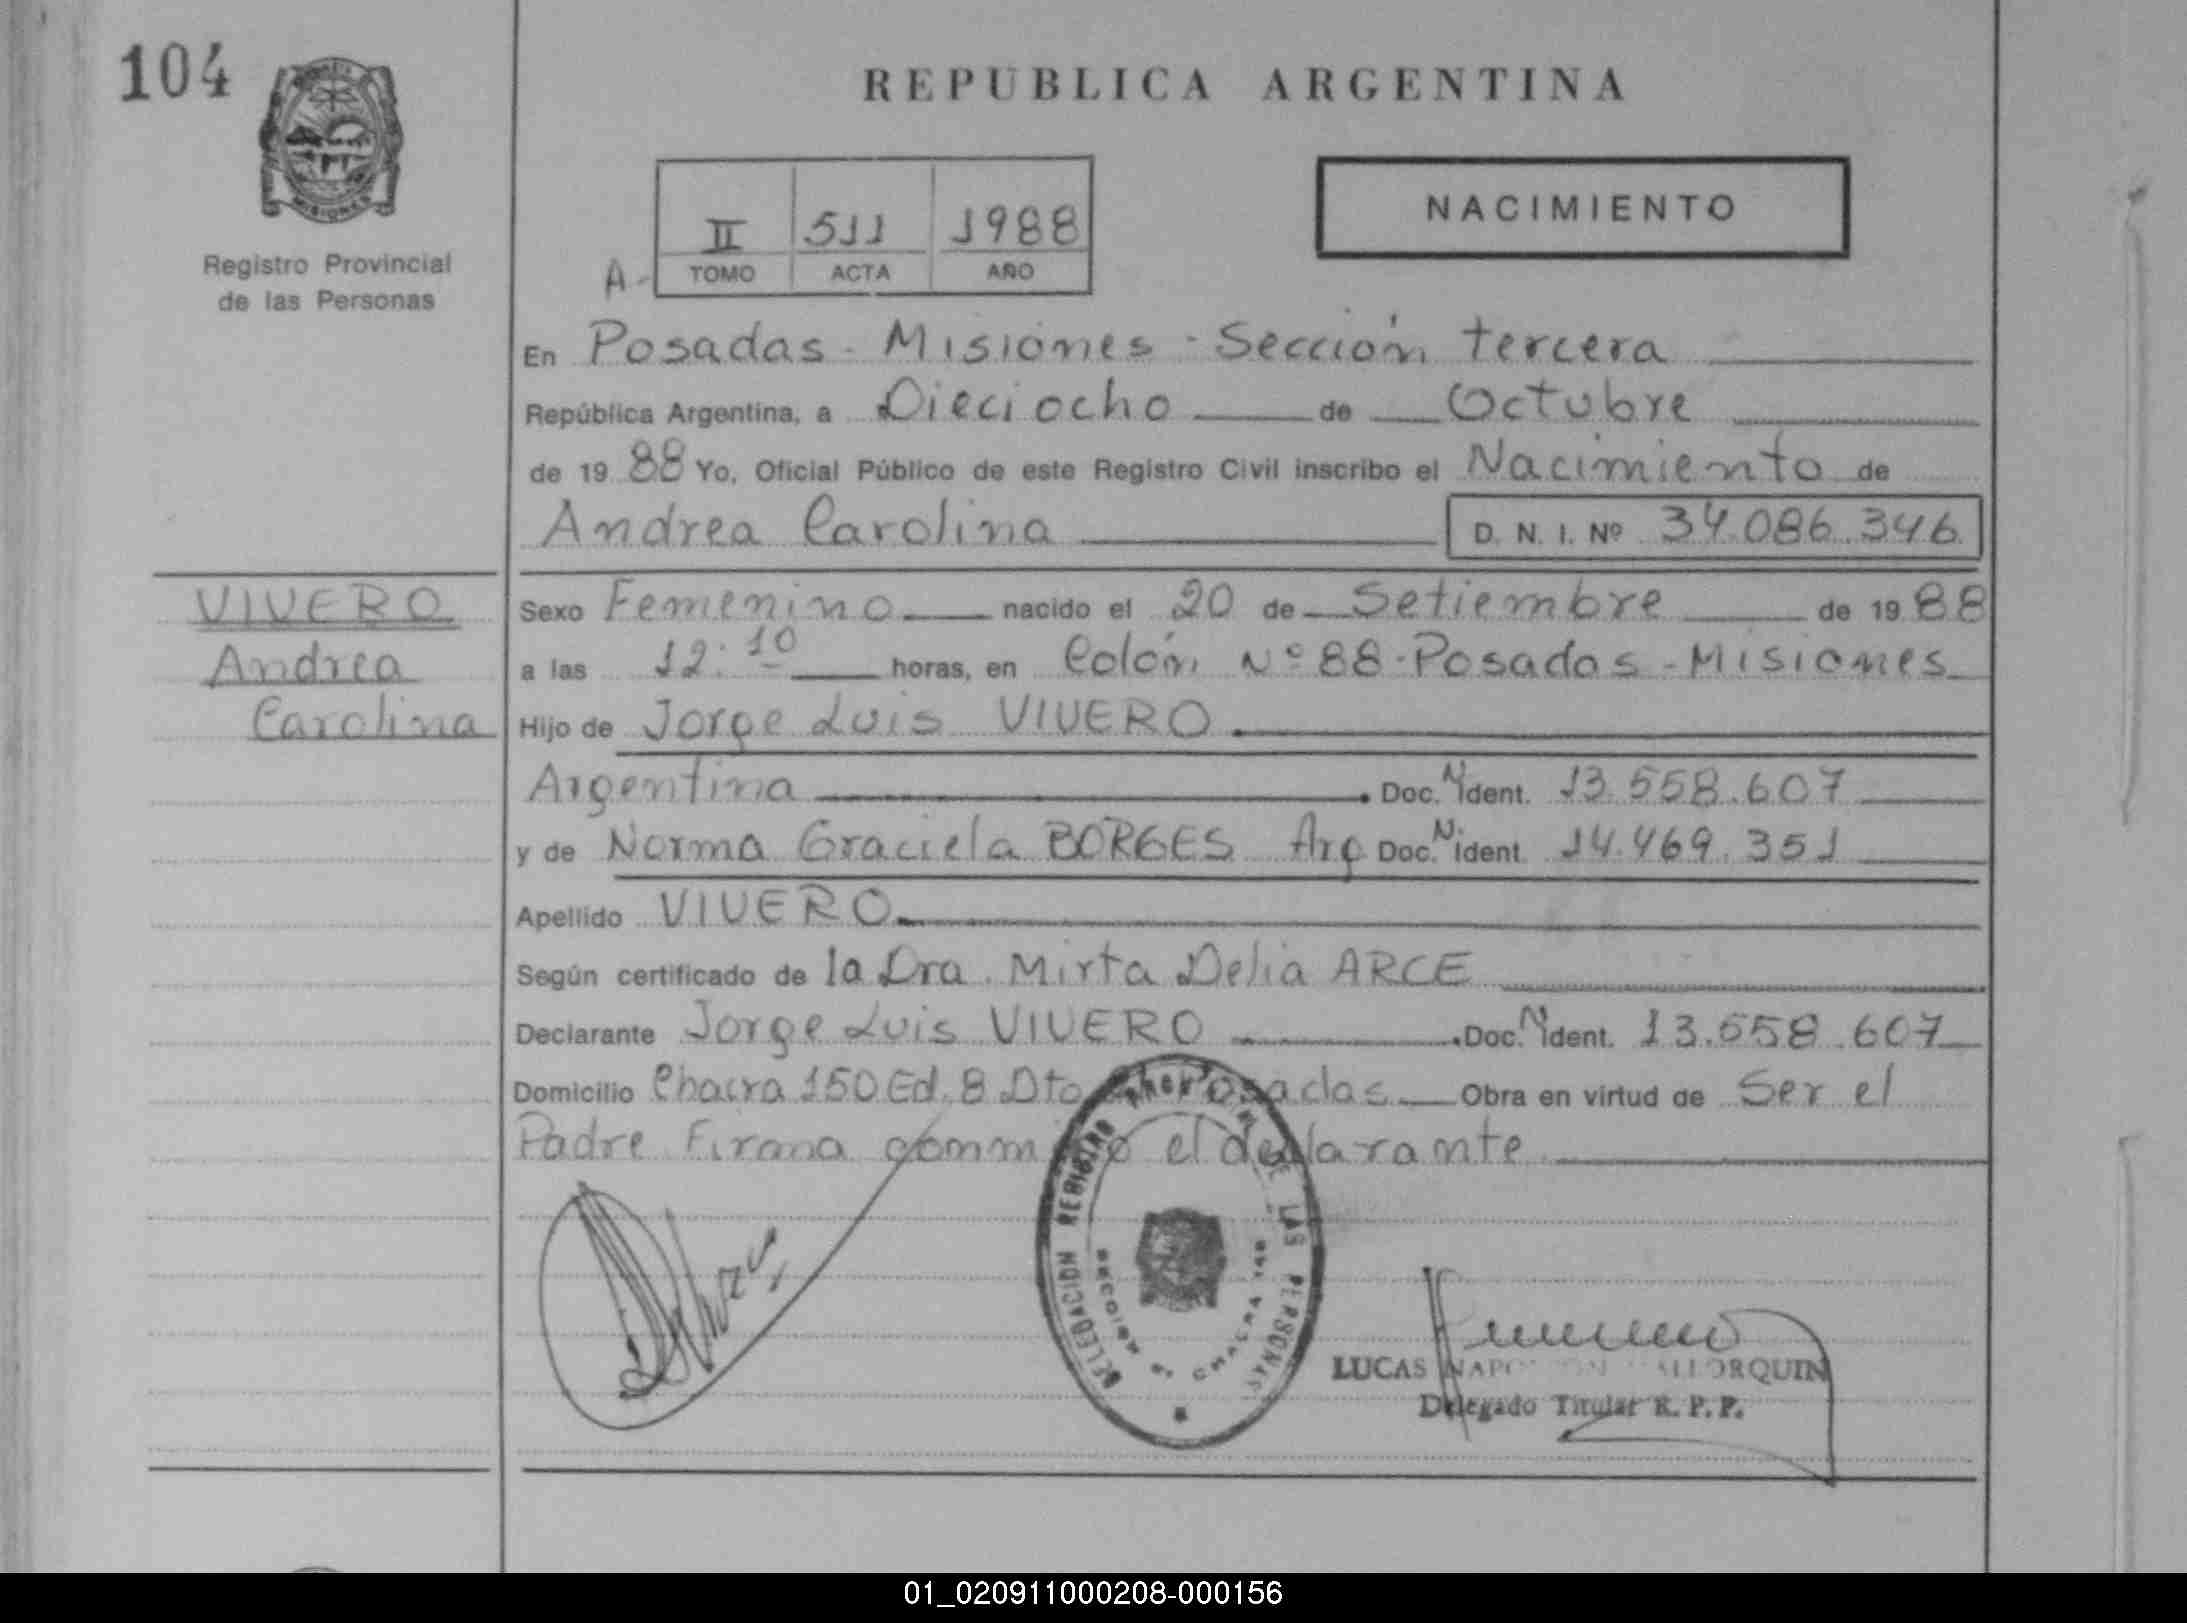 104
REPUBLICA ARGENTINA
NACIMIENTO
MISIONES
Registro Provincial
de las Personas
II 511 1988
A- TOMO ACTA AÑO
En Posadas - Misiones - Sección tercera
República Argentina, a Dieciocho de Octubre
de 19 88 Yo, Oficial Público de este Registro Civil inscribo el Nacimiento de
Andrea Carolina D. N. I. Nº 34.086.346
VIVERO
Andrea
Carolina
Sexo Femenino nacido el 20 de Setiembre de 19 88
a las 12:10 horas, en Colón Nº 88 - Posadas - Misiones
Hijo de Jorge Luis VIVERO
Argentina Doc. N. Ident. 13.558.607
y de Norma Graciela BORGES Arg Doc. N. Ident. 14.469.351
Apellido VIVERO
Según certificado de la Dra. Mirta Delia ARCE
Declarante Jorge Luis VIVERO Doc. N. Ident. 13.558.607
Domicilio Chacra 150 Ed. 8 Dto Posadas Obra en virtud de Ser el
Padre Firma conmigo el declarante
DELEGACION REGISTRO DE LAS PERSONAS
SECCION CHACRA
LUCAS
Delegado Titular R. P. P.
01_020911000208-000156